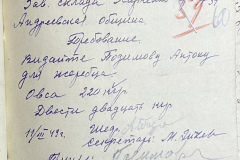 Зав. склада
Андреевская община
Требование.
Видайте Позимову Антону
для жеребца.
Овса 220 кгр.
Двести двадцать кгр
11/III 43г.
Секретарь: М. Зыков